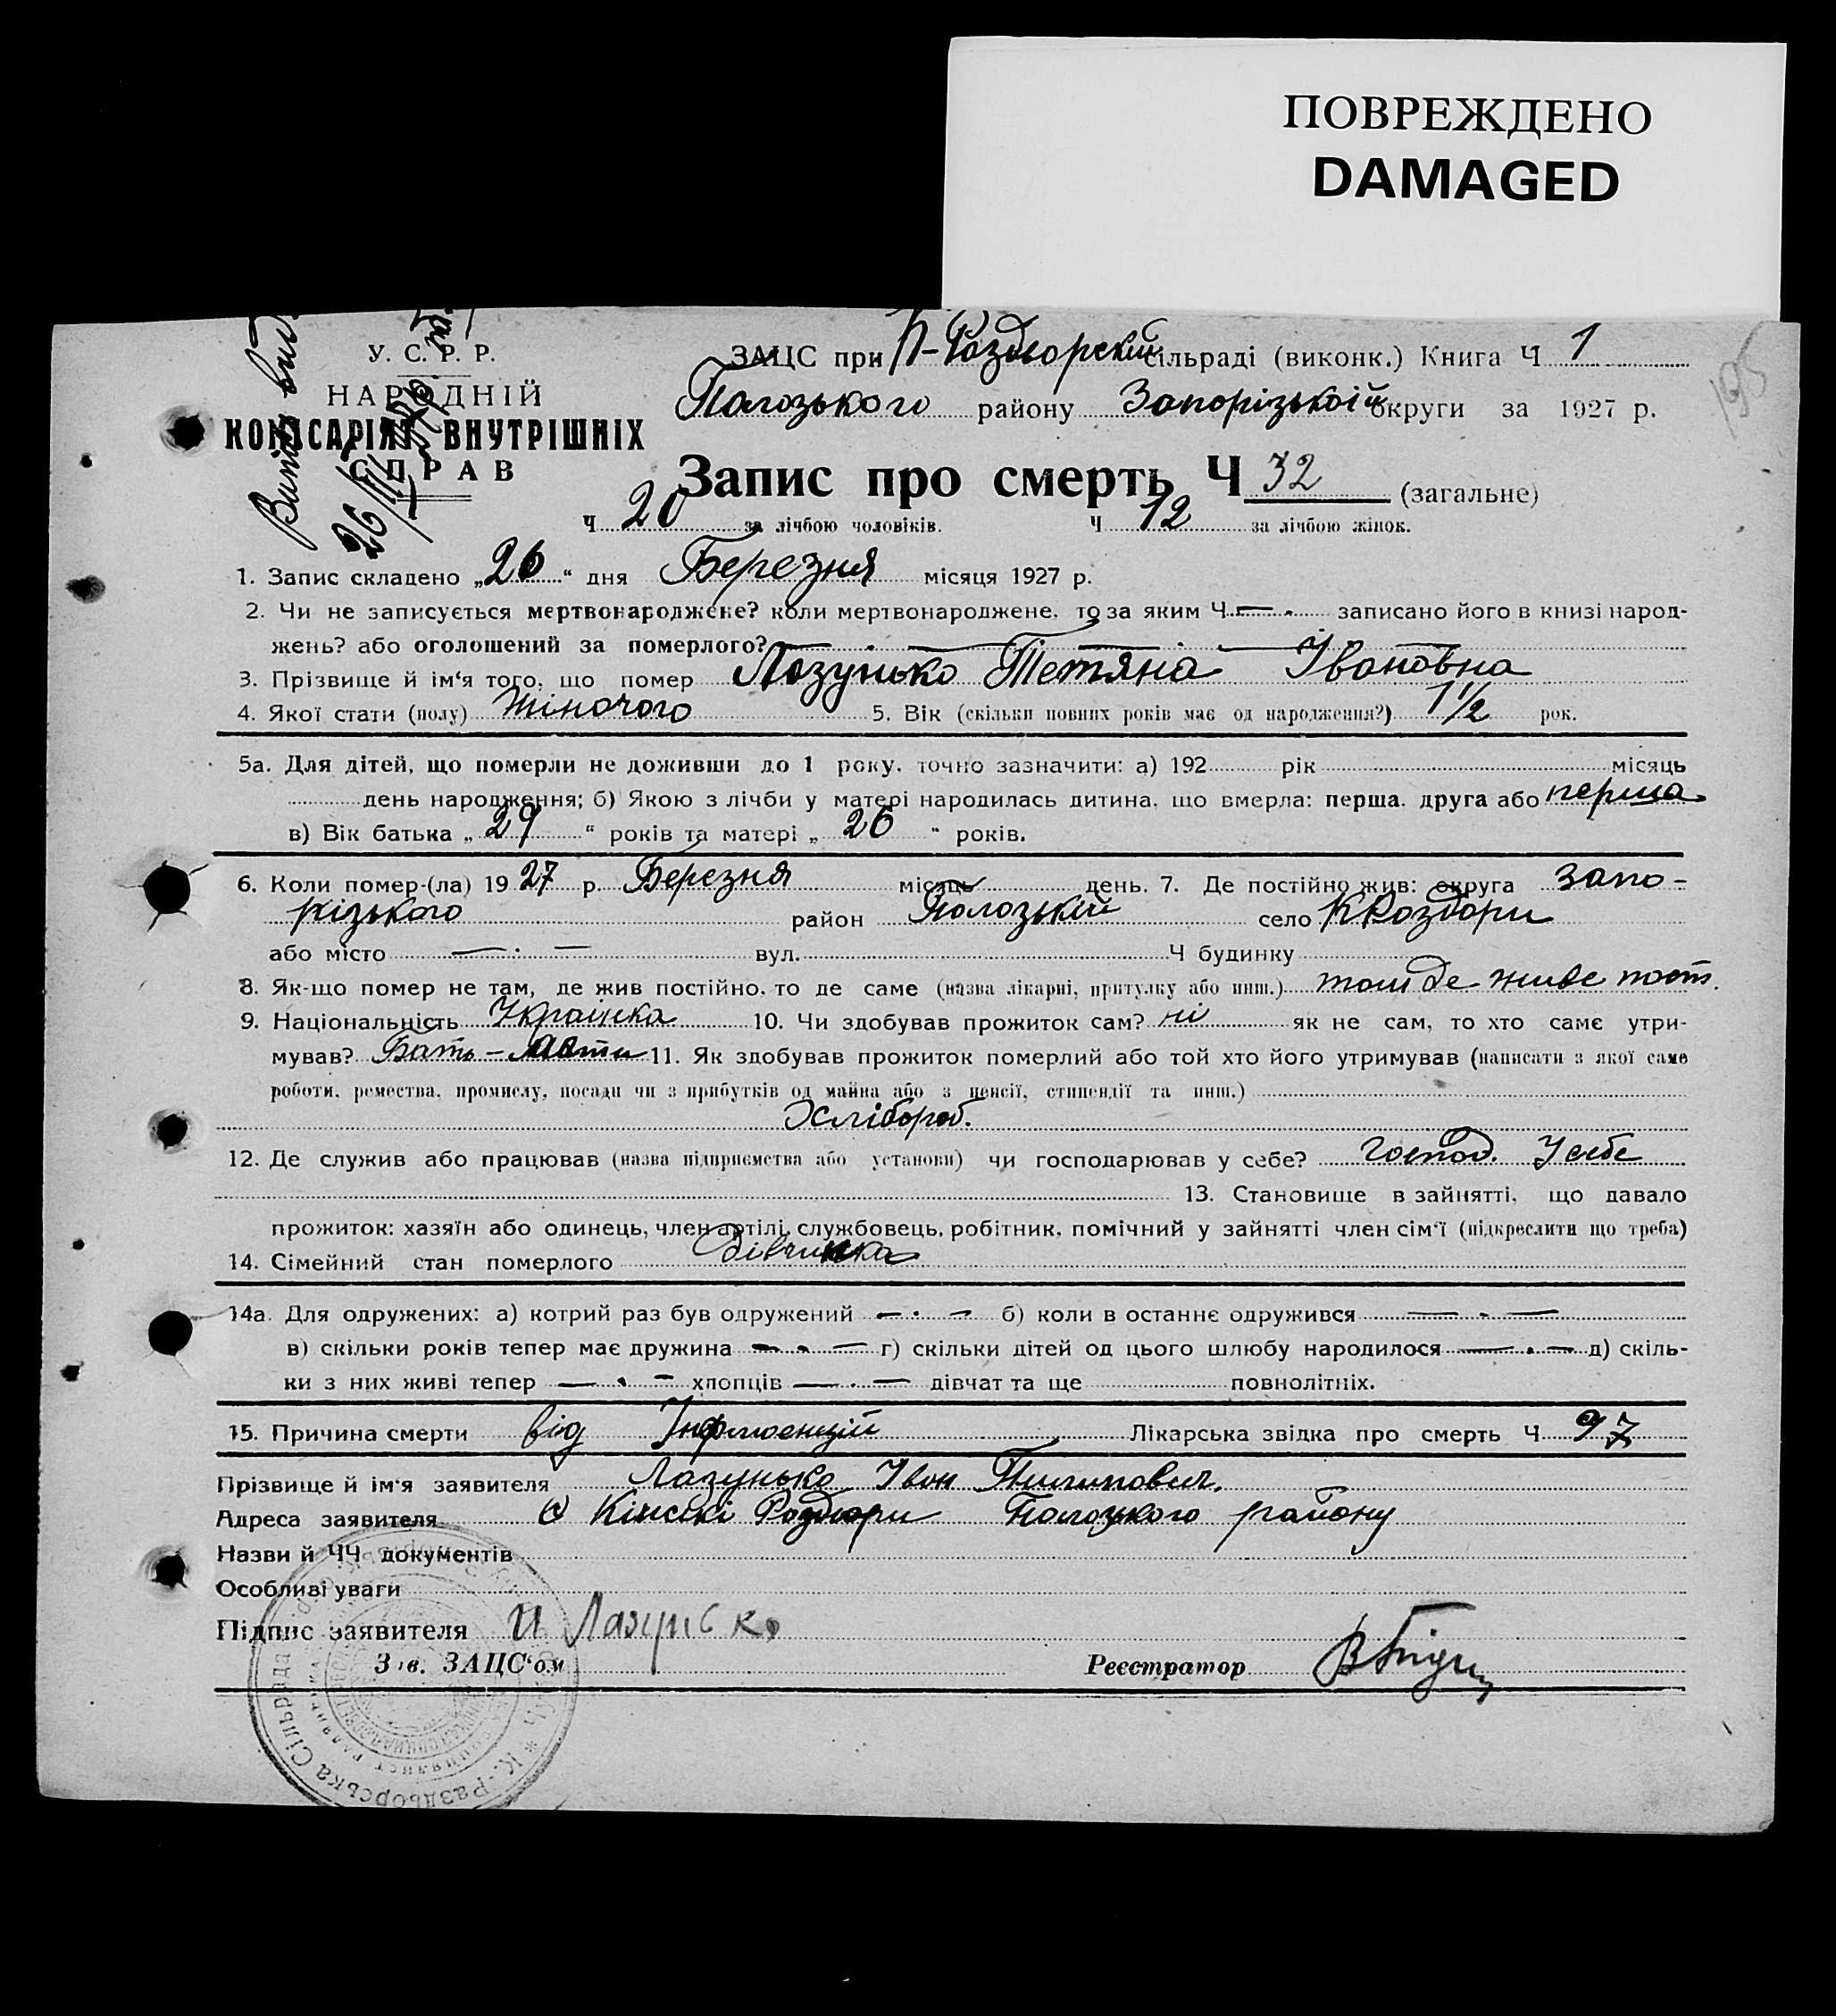 ПОВРЕЖДЕНО
DAMAGED
У. С. Р. Р.
НАРОДНІЙ
КОМІСАРІЯТ ВНУТРІШНІХ
СПРАВ
26/III
195
ЗАЦС при К-Роздорский сільраді (виконк.) Книга Ч 1
Пологзького району Запорізькой округи за 1927 р.
Запис про смерть Ч 32 (загальне)
Ч 20 за лічбою чоловіків. Ч 12 за лічбою жінок.
1. Запис складено „26“ дня Березня місяця 1927 р.
2. Чи не записується мертвонароджене? коли мертвонароджене, то за яким Ч — . записано його в книзі народ-
жень? або оголошений за померлого? —
3. Прізвище й ім‘я того, що помер Лозунько Тетяна Івановна
4. Якої стати (полу) Жіночого 5. Вік (скільки повних років має од народження?) 1 1/2 рок.
5а. Для дітей, що померли не доживши до 1 року, точно зазначити: а) 192 рік місяць
день народження; б) Якою з лічби у матері народилась дитина, що вмерла: перша, друга або перша
в) Вік батька „ 29 “ років та матері „ 26 “ років.
6. Коли помер-(ла) 19 27 р. Березня місяць день. 7. Де постійно жив: округа Запо-
різького район Полозькій село К Роздори
або місто — . — вул. Ч будинку
8. Як-що помер не там, де жив постійно, то де саме (назва лікарні, притулку або инш.) там де живе пост.
9. Національність Українка 10. Чи здобував прожиток сам? ні як не сам, то хто саме утри-
мував? Бать-мати 11. Як здобував прожиток померлий або той хто його утримував (написати з якої саме
роботи, ремества, промислу, посади чи з прибутків од майна або з пенсії, стипендії та инш.)
Хлібороб.
12. Де служив або працював (назва підприємства або установи) чи господарював у себе? Господ. У себе
13. Становище в зайнятті, що давало
прожиток: хазяїн або одинець, член артілі, службовець, робітник, помічний у зайнятті член сім‘ї (підкреслити що треба)
14. Сімейний стан померлого Дівчинка
14а. Для одружених: а) котрий раз був одружений — . — б) коли в останнє одружився — . —
в) скільки років тепер має дружина — . — г) скільки дітей од цього шлюбу народилося — . — д) скіль-
ки з них живі тепер — . — хлопців — . — дівчат та ще повнолітніх.
15. Причина смерти від Інфлюенцій Лікарська звідка про смерть Ч 97
Прізвище й ім‘я заявителя Лазунько Іван Пилипович.
Адреса заявителя с Кінські Роздори Полозького району
Назви й ЧЧ документів
Особливі уваги
Підпис заявителя И Лазунько
Зав. ЗАЦС‘ом Реєстратор
К.-Раздорська Сільрада